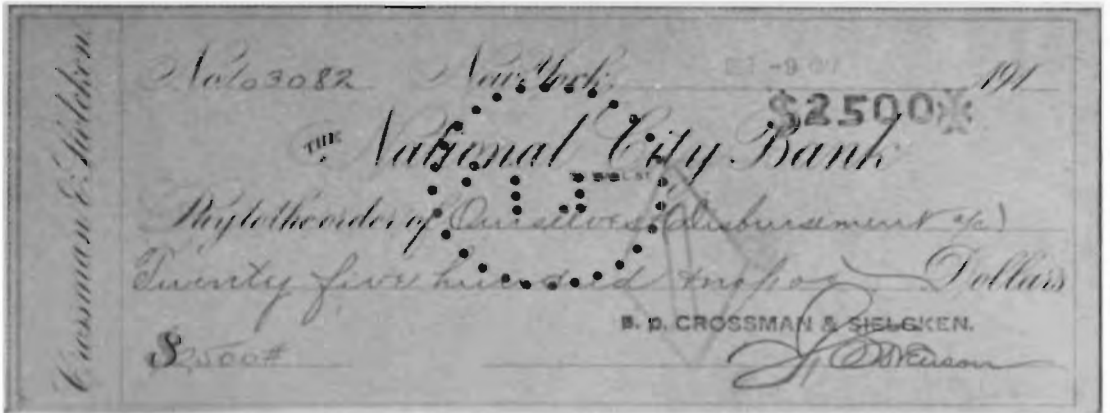 Crossman & Sielcken.
No. 103082 New York 191
$2500
THE National City Bank
Pay to the order of Ourselves (Disbursement a/c)
Twenty five hundred Dollars
B. P. CROSSMAN & SIELCKEN.
$2500#